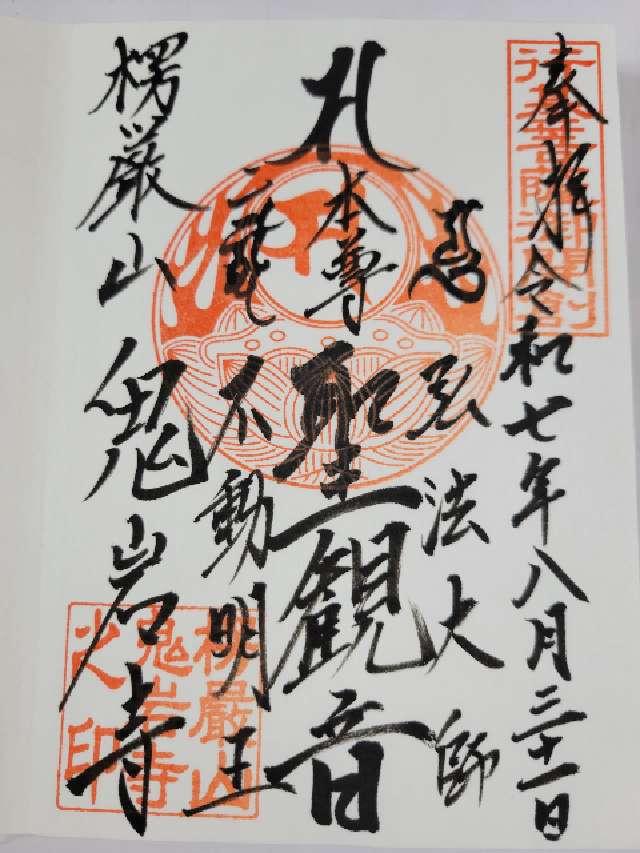 奉拝
令和七年八月三十一日
弘法大師
札
本尊
聖観音
不動明王
楞厳山
鬼岩寺
行基菩薩御開創
楞嚴山
鬼岩寺
之印